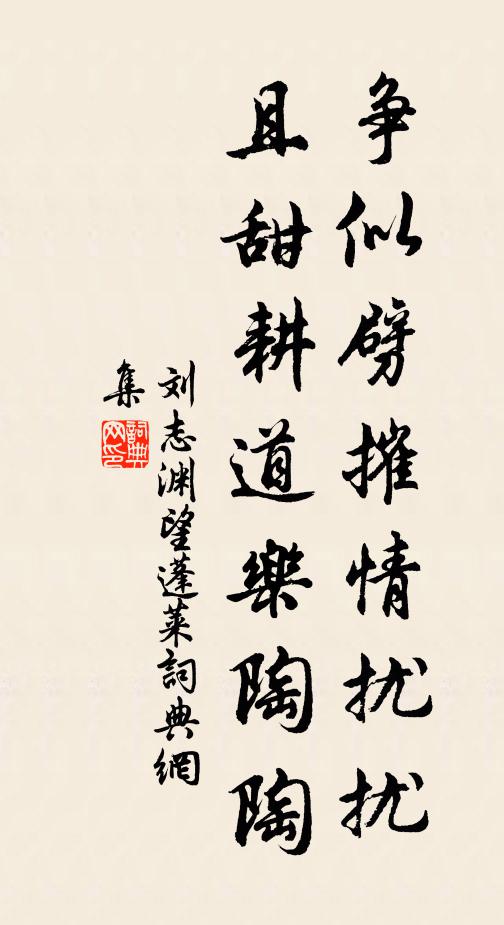 争似劈摧情扰扰
且甜耕道樂陶陶
刘志渊望蓬莱詞典網
集
詞典网印